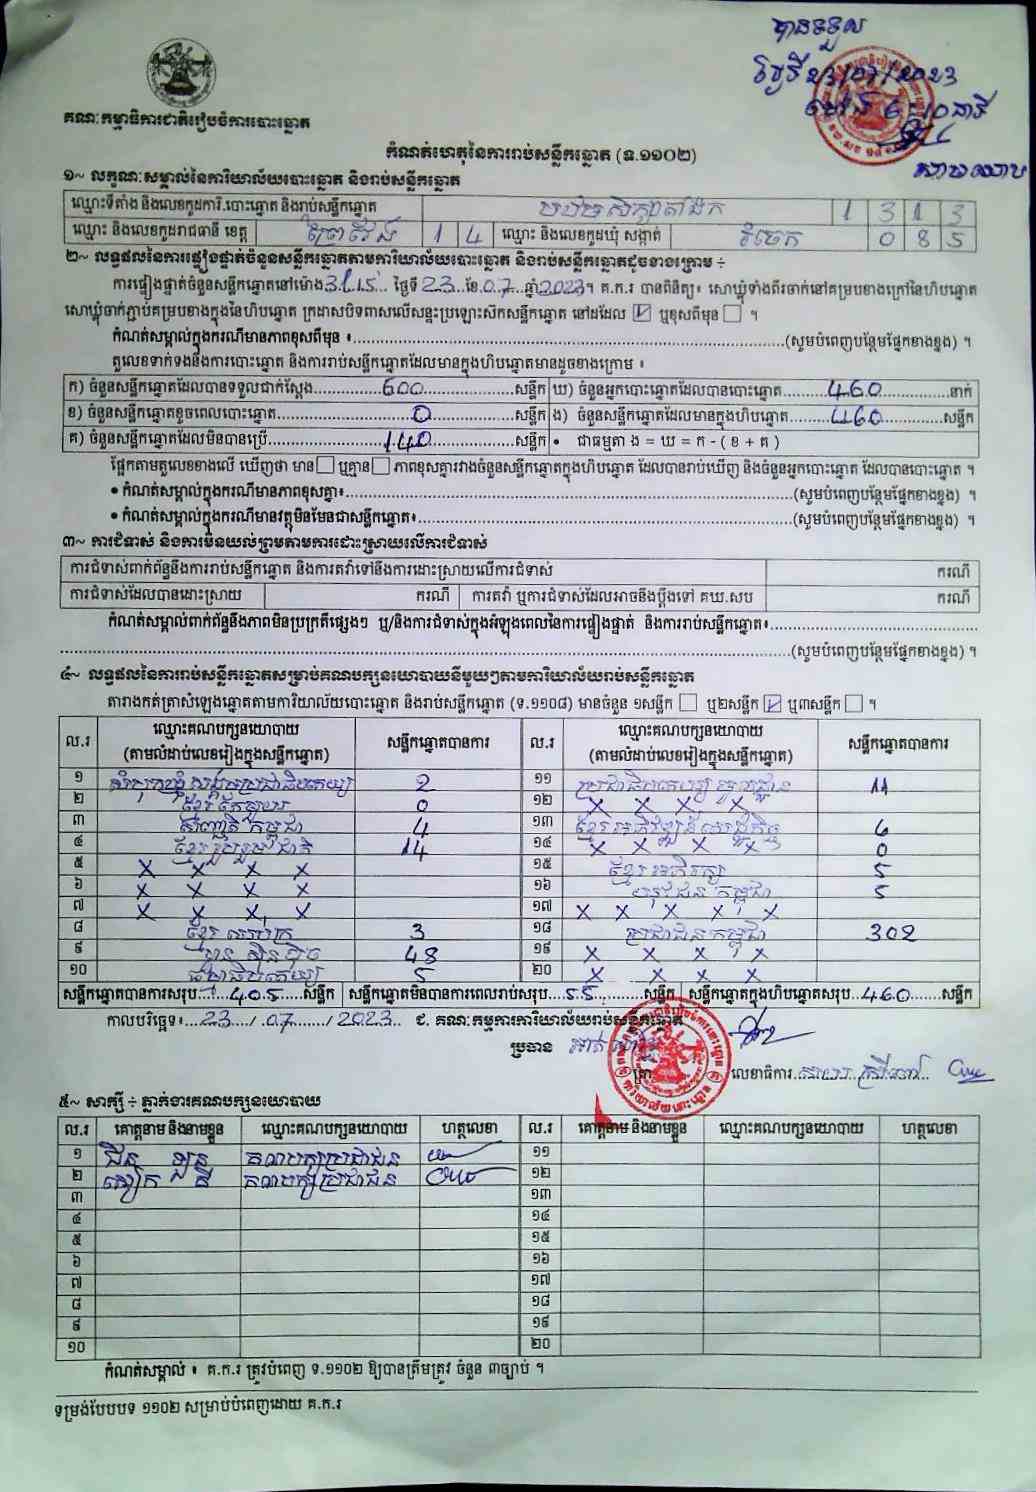 បានទទួល
ថ្ងៃទី 23/07/2023
ម៉ោង 6:10 នាទី
គណៈកម្មាធិការជាតិរៀបចំការបោះឆ្នោត
កំណត់ហេតុនៃការរាប់សន្លឹកឆ្នោត (ទ.១១០២)
១~ លក្ខណៈសម្គាល់នៃការិយាល័យបោះឆ្នោត និងរាប់សន្លឹកឆ្នោត
ឈ្មោះទីតាំង និងលេខកូដការិ.បោះឆ្នោត និងរាប់សន្លឹកឆ្នោត 1 3 1 3
ឈ្មោះ និងលេខកូដរាជធានី ខេត្ត ព្រៃវែង 1 4 ឈ្មោះ និងលេខកូដឃុំ សង្កាត់ រំចេក 0 8 5
២~ លទ្ធផលនៃការផ្ទៀងផ្ទាត់ចំនួនសន្លឹកឆ្នោតតាមការិយាល័យបោះឆ្នោត និងរាប់សន្លឹកឆ្នោតដូចខាងក្រោម ÷
ការផ្ទៀងផ្ទាត់ចំនួនសន្លឹកឆ្នោតនៅម៉ោង 3:15 ថ្ងៃទី 23 ខែ 07 ឆ្នាំ 2023 ។ គ.ក.រ បានពិនិត្យ៖ សោឃ្លុំទាំងពីរចាក់នៅគម្របខាងក្រៅនៃហិបឆ្នោត
សោឃ្លុំចាក់ភ្ជាប់គម្របខាងក្នុងនៃហិបឆ្នោត ក្រដាសបិទពាសលើសន្ទះប្រឡោះស៊កសន្លឹកឆ្នោត នៅដដែល ☑ ឬខុសពីមុន ☐ ។
កំណត់សម្គាល់ក្នុងករណីមានភាពខុសពីមុន ៖ (សូមបំពេញបន្ថែមផ្នែកខាងខ្នង) ។
តួលេខទាក់ទងនឹងការបោះឆ្នោត និងការរាប់សន្លឹកឆ្នោតដែលមានក្នុងហិបឆ្នោតមានដូចខាងក្រោម ៖
ក) ចំនួនសន្លឹកឆ្នោតដែលបានទទួលជាក់ស្តែង 600 សន្លឹក ឃ) ចំនួនអ្នកបោះឆ្នោតដែលបានបោះឆ្នោត 460 នាក់
ខ) ចំនួនសន្លឹកឆ្នោតខូចពេលបោះឆ្នោត 0 សន្លឹក ង) ចំនួនសន្លឹកឆ្នោតដែលមានក្នុងហិបឆ្នោត 460 សន្លឹក
គ) ចំនួនសន្លឹកឆ្នោតដែលមិនបានប្រើ 140 សន្លឹក • ជាធម្មតា ង = ឃ = ក - ( ខ + គ )
ផ្អែកតាមតួលេខខាងលើ ឃើញថា មាន ☐ ឬគ្មាន ☐ ភាពខុសគ្នារវាងចំនួនសន្លឹកឆ្នោតក្នុងហិបឆ្នោត ដែលបានរាប់ឃើញ និងចំនួនអ្នកបោះឆ្នោត ដែលបានបោះឆ្នោត ។
• កំណត់សម្គាល់ក្នុងករណីមានភាពខុសគ្នា៖ (សូមបំពេញបន្ថែមផ្នែកខាងខ្នង) ។
• កំណត់សម្គាល់ក្នុងករណីមានវត្ថុមិនមែនជាសន្លឹកឆ្នោត៖ (សូមបំពេញបន្ថែមផ្នែកខាងខ្នង) ។
៣~ ការជំទាស់ និងការមិនយល់ព្រមតាមការដោះស្រាយលើការជំទាស់
ការជំទាស់ពាក់ព័ន្ធនឹងការរាប់សន្លឹកឆ្នោត និងការតវ៉ាទៅនឹងការដោះស្រាយលើការជំទាស់ ករណី
ការជំទាស់ដែលបានដោះស្រាយ ករណី ការតវ៉ា ឬការជំទាស់ដែលអាចនឹងប្តឹងទៅ គឃ.សប ករណី
កំណត់សម្គាល់ពាក់ព័ន្ធនឹងភាពមិនប្រក្រតីផ្សេងៗ ឬ/និងការជំទាស់ក្នុងអំឡុងពេលនៃការផ្ទៀងផ្ទាត់ និងការរាប់សន្លឹកឆ្នោត៖
(សូមបំពេញបន្ថែមផ្នែកខាងខ្នង) ។
៤~ លទ្ធផលនៃការរាប់សន្លឹកឆ្នោតសម្រាប់គណបក្សនយោបាយនីមួយៗតាមការិយាល័យរាប់សន្លឹកឆ្នោត
តារាងកត់ត្រាសំឡេងឆ្នោតតាមការិយាល័យបោះឆ្នោត និងរាប់សន្លឹកឆ្នោត (ទ.១១០៨) មានចំនួន ១សន្លឹក ☐ ឬ២សន្លឹក ☑ ឬ៣សន្លឹក ☐ ។
ល.រ ឈ្មោះគណបក្សនយោបាយ (តាមលំដាប់លេខរៀងក្នុងសន្លឹកឆ្នោត) សន្លឹកឆ្នោតបានការ ល.រ ឈ្មោះគណបក្សនយោបាយ (តាមលំដាប់លេខរៀងក្នុងសន្លឹកឆ្នោត) សន្លឹកឆ្នោតបានការ
១ សំបុកឃ្មុំសង្គមប្រជាធិបតេយ្យ 2 ១១ ប្រជាធិបតេយ្យមូលដ្ឋាន 11
២ ខ្មែរតែមួយ 0 ១២ X X X X
៣ សញ្ជាតិកម្ពុជា 4 ១៣ ខ្មែរអភិវឌ្ឍន៍សេដ្ឋកិច្ច 6
៤ ខ្មែររួបរួមជាតិ 14 ១៤ X X X X 0
៥ X X X X ១៥ ខ្មែរអភិរក្ស 5
៦ X X X X ១៦ យុវជនកម្ពុជា 5
៧ X X X X ១៧ X X X X X
៨ ខ្មែរឈប់ក្រ 3 ១៨ ប្រជាជនកម្ពុជា 302
៩ ហ្វ៊ុនស៊ិនប៉ិច 48 ១៩ X X X X
១០ ធម្មាធិបតេយ្យ 5 ២០ X X X X
សន្លឹកឆ្នោតបានការសរុប 405 សន្លឹក សន្លឹកឆ្នោតមិនបានការពេលរាប់សរុប 55 សន្លឹក សន្លឹកឆ្នោតក្នុងហិបឆ្នោតសរុប 460 សន្លឹក
កាលបរិច្ឆេទ៖ 23 / 07 / 2023 ជ. គណៈកម្មការការិយាល័យរាប់សន្លឹកឆ្នោត
ប្រធាន
ត្រា លេខាធិការ
៥~ សាក្សី ÷ ភ្នាក់ងារគណបក្សនយោបាយ
ល.រ គោត្តនាម និងនាមខ្លួន ឈ្មោះគណបក្សនយោបាយ ហត្ថលេខា ល.រ គោត្តនាម និងនាមខ្លួន ឈ្មោះគណបក្សនយោបាយ ហត្ថលេខា
១ គណបក្សប្រជាជន ១១
២ គណបក្សប្រជាជន ១២
៣ ១៣
៤ ១៤
៥ ១៥
៦ ១៦
៧ ១៧
៨ ១៨
៩ ១៩
១០ ២០
កំណត់សម្គាល់ ៖ គ.ក.រ ត្រូវបំពេញ ទ.១១០២ ឱ្យបានត្រឹមត្រូវ ចំនួន ៣ច្បាប់ ។
ទម្រង់បែបបទ ១១០២ សម្រាប់បំពេញដោយ គ.ក.រ